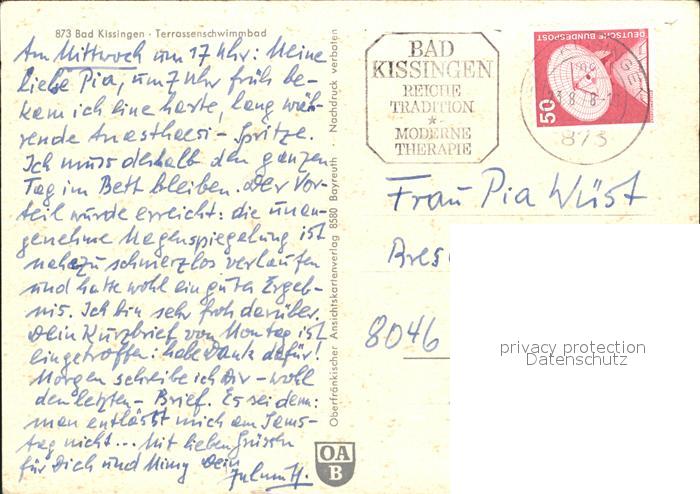 873 Bad Kissingen · Terrassenschwimmbad
Am Mittwoch um 17 Uhr: Meine
liebe Pia, um 7 Uhr früh be-
kam ich eine harte, lang wäh-
rende Anästhesi-Spritze.
Ich muss deshalb den ganzen
Tag im Bett bleiben. Der Vor-
teil wurde erreicht: die unan-
genehme Magenspiegelung ist
nahezu schmerzlos verlaufen
und hatte wohl ein gutes Ergeb-
nis. Ich bin sehr froh darüber.
Dein Kurzbrief von Montag ist
eingetroffen: habe Dank dafür!
Morgen schreibe ich Dir – wohl
den letzten – Brief. Es sei denn:
man entlässt mich am Sams-
tag nicht... Mit lieben Grüssen
für Dich und Mimy Dein
Oberfränkischer Ansichtskartenverlag 8580 Bayreuth · Nachdruck verboten
OA
B
BAD
KISSINGEN
REICHE
TRADITION
*
MODERNE
THERAPIE
DEUTSCHE BUNDESPOST
50
873
Frau Pia Wüst
8046
privacy protection
Datenschutz